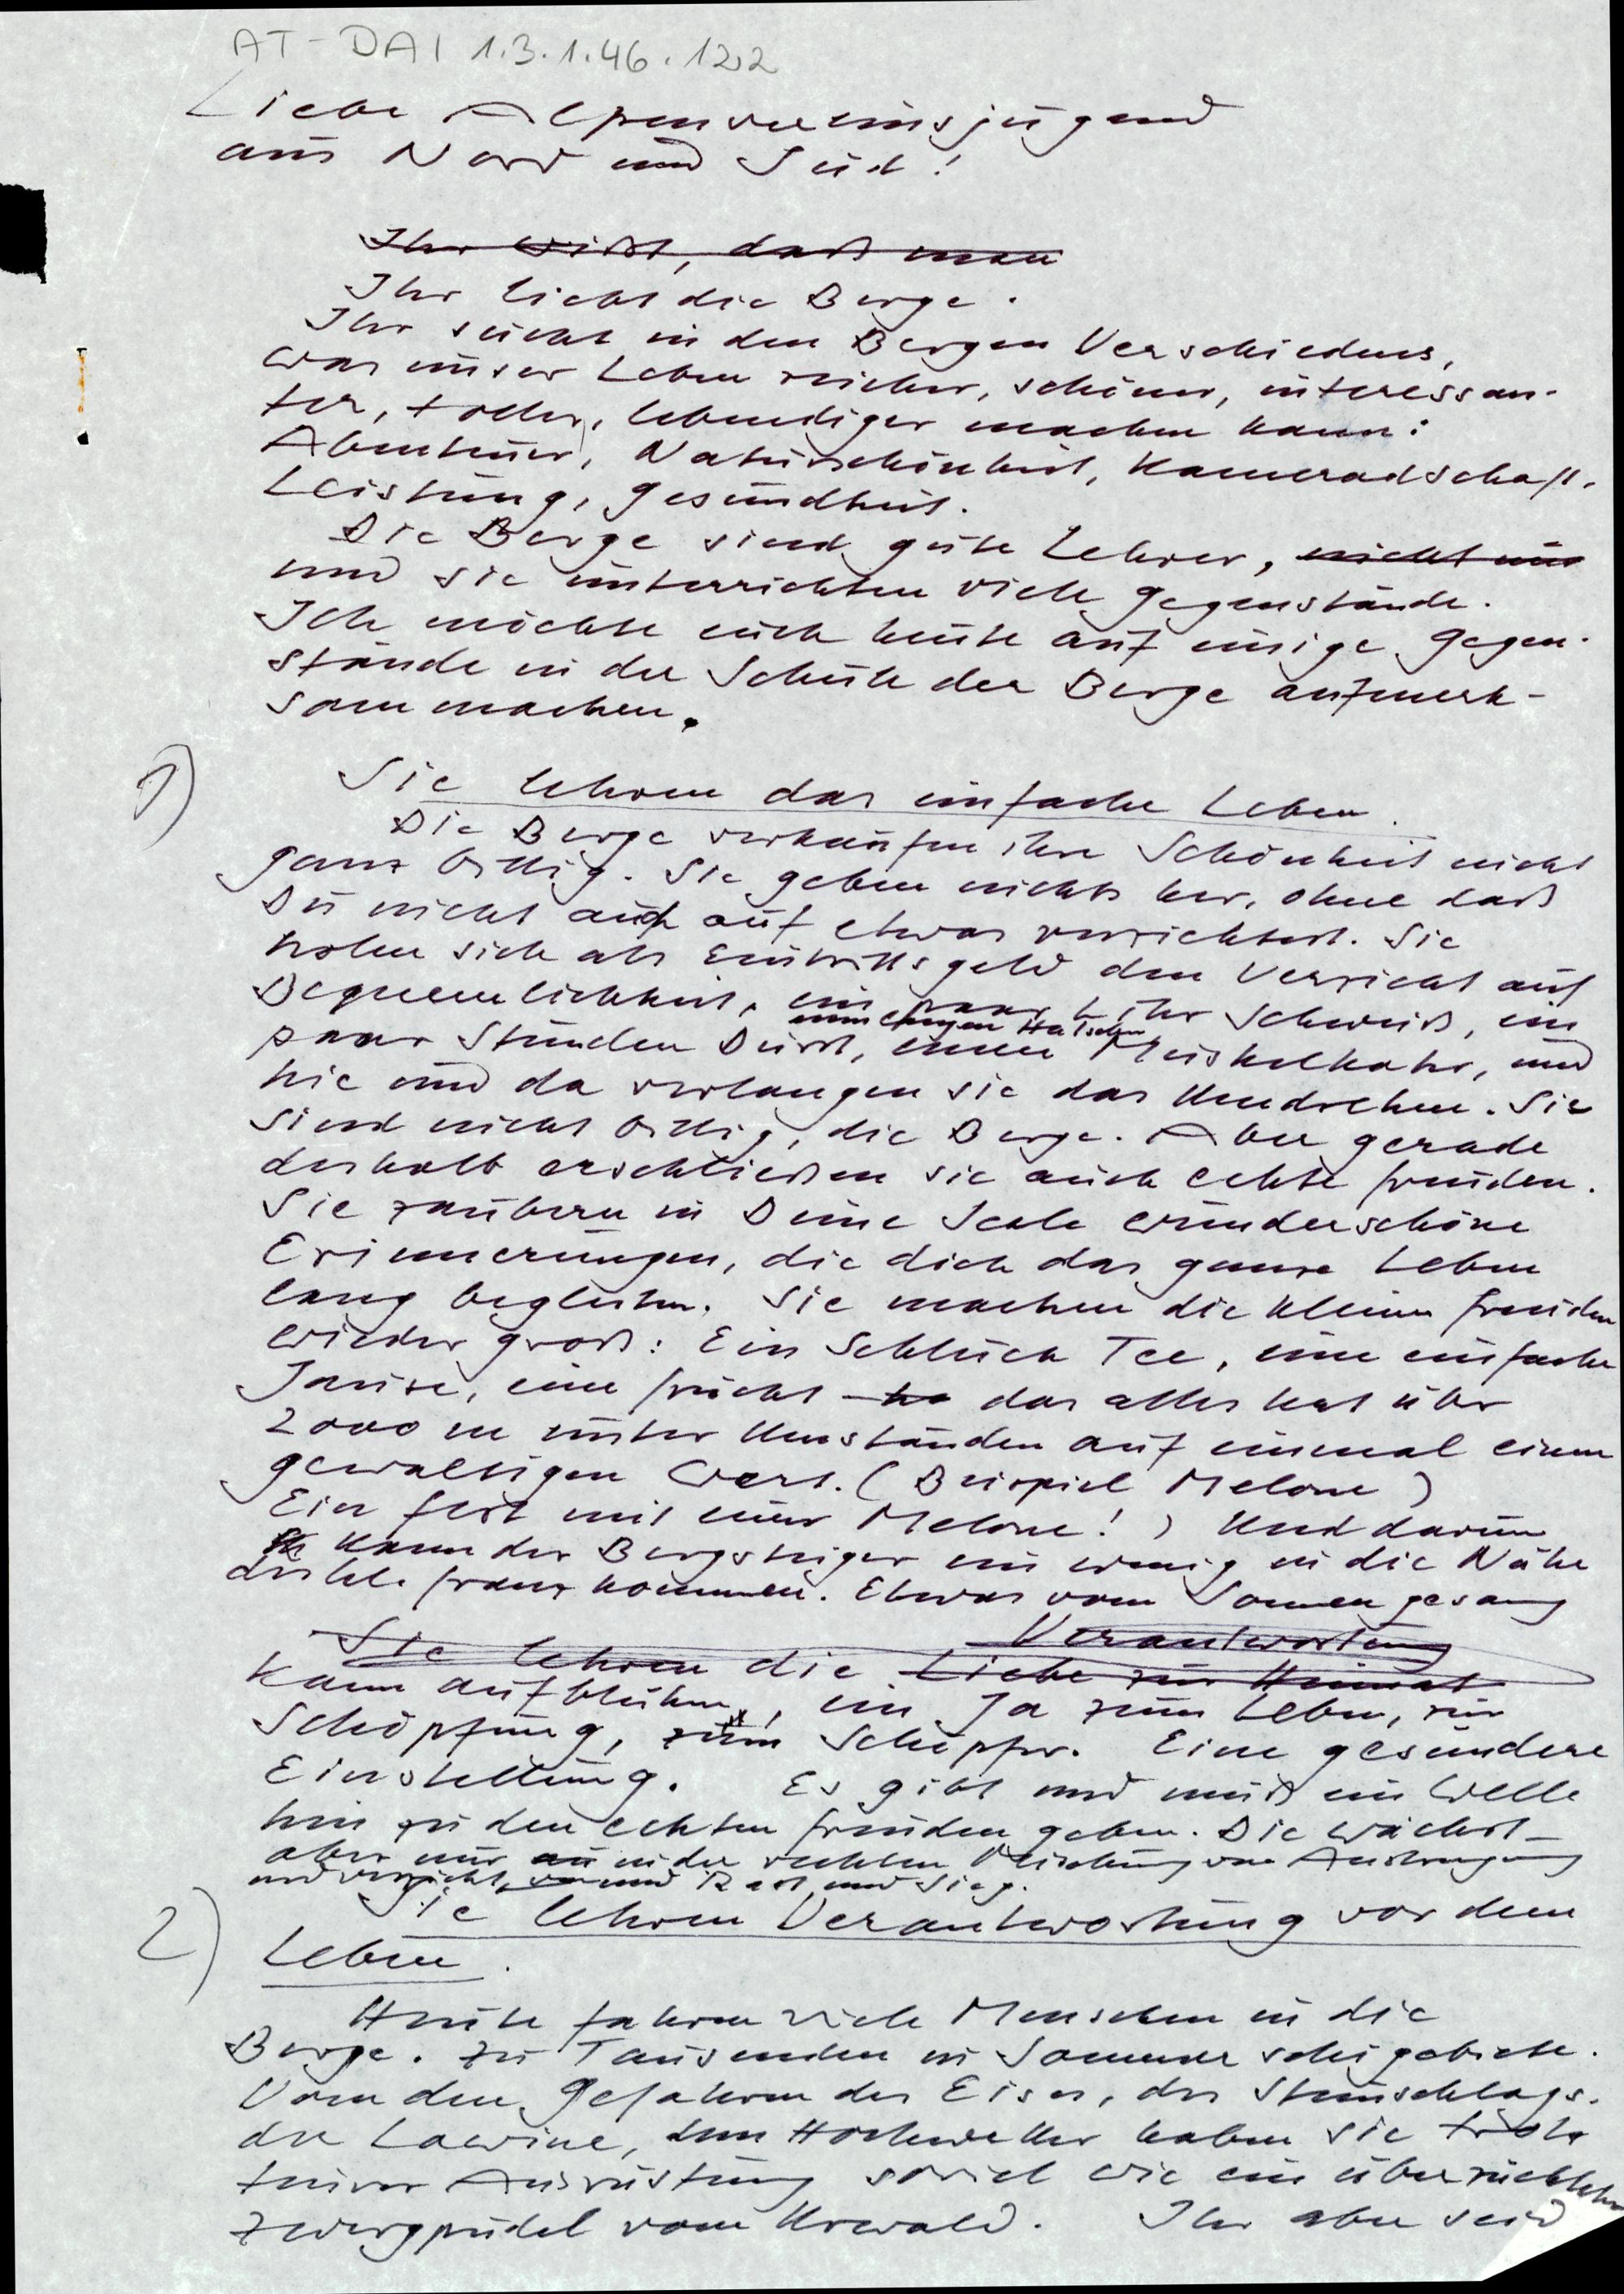 AT-DAI 1.3.1.46.122
Liebe Alpenvereinsjugend
aus Nord und Süd!
Ihr wißt, daß man
Ihr liebt die Berge.
Ihr sucht in den Bergen Verschiedenes,
was unser Leben reicher, schöner, interessan-
ter, toller, lebendiger machen kann:
Abenteuer, Naturschönheit, Kameradschaft,
Leistung, Gesundheit.
Die Berge sind gute Lehrer, nicht nur
und sie unterrichten viele Gegenstände.
Ich möchte euch heute auf einige Gegen-
stände in der Schule der Berge aufmerk-
sam machen.
1) Sie lehren das einfache Leben.
Die Berge verkaufen ihre Schönheit nicht
ganz billig. Sie geben nichts her, ohne daß
Du nicht auch auf etwas verzichtest. Sie
holen sich als Eintrittsgeld den Verzicht auf
Bequemlichkeit, ein paar Liter Schweiß, ein
paar Stunden Durst, einen Muskelkater, und
hie und da verlangen sie das Umdrehen. Sie
sind nicht billig, die Berge. Aber gerade
deshalb erschließen sie auch echte Freuden.
Sie zaubern in Deine Seele wunderschöne
Erinnerungen, die dich das ganze Leben
lang begleiten. Sie machen die kleinen Freuden
wieder groß: Ein Schluck Tee, eine einfache
Jause, eine Frucht – ha das alles hat über
2000 m unter Umständen auf einmal einen
gewaltigen Wert. (Beispiel Melone)
Ein Fest mit einer Melone!) Und darum
kann der Bergsteiger ein wenig in die Nähe
des hl. Franz kommen. Etwas vom Sonnengesang
Verantwortung
Sie lehren die Liebe zur Heimat
kann aufblühen, ein Ja zum Leben, zur
Schöpfung, zum Schöpfer. Eine gesundere
Einstellung. Es gibt und muß ein Welle
hin zu den echten Freuden geben. Die wächst
aber nur an in der rechten Mischung von Anstrengung
und Verzicht, und Rast und Sieg.
2) Sie lehren Verantwortung vor dem
Leben.
Heute fahren viele Menschen in die
Berge. Zu Tausenden in Sommerschigebiete.
Von den Gefahren des Eises, des Steinschlags,
der Lawine, dem Hochwetter haben sie trotz
teurer Ausrüstung soviel wie ein überzüchteter
Zwergpudel vom Urwald. Ihr aber seid